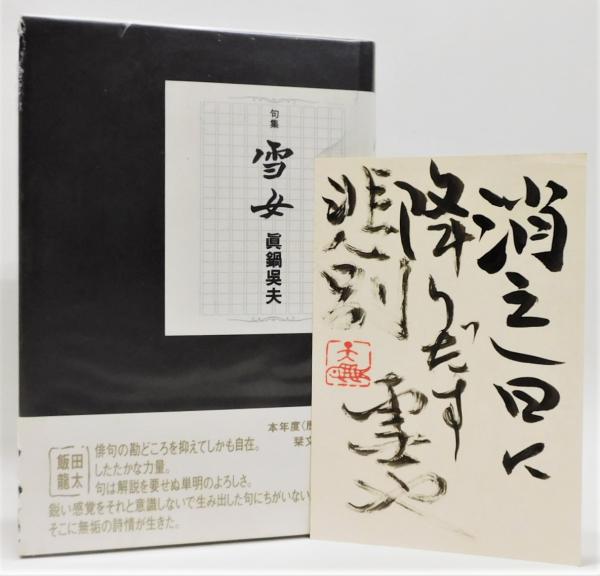 句集
雪女
眞鍋呉夫
本年度
栞文
飯田
龍太
俳句の勘どころを抑えてしかも自在。
したたかな力量。
句は解説を要せぬ単明のよろしさ。
鋭い感覚をそれと意識しないで生み出した句にちがいない
そこに無垢の詩情が生きた。
消えし日に
降りだす
雪や
悲別